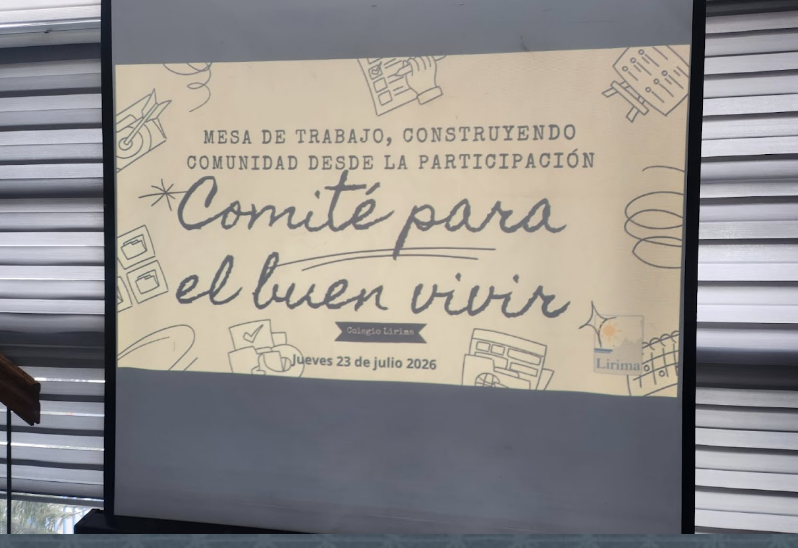 MESA DE TRABAJO, CONSTRUYENDO
COMUNIDAD DESDE LA PARTICIPACIÓN
Comité para
el buen vivir
Colegio Lirima
Jueves 23 de julio 2026
Lirima